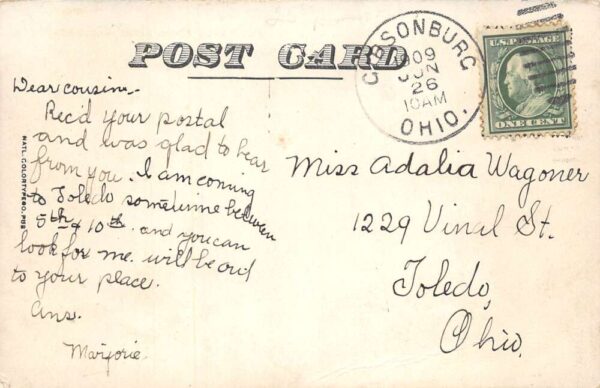 POST CARD
GIBSONBURG
1909
JUN
26
10AM
OHIO.
U.S. POSTAGE
ONE CENT
Dear cousin:-
Rec'd your postal
and was glad to hear
from you. I am coming
to Toledo sometime between
5th & 10th. and you can
look for me. will be out
to your place.
Ans.
Marjorie.
Miss Adalia Wagoner
1229 Vinal St.
Toledo,
Ohio.
NATL. COLORTYPE CO.